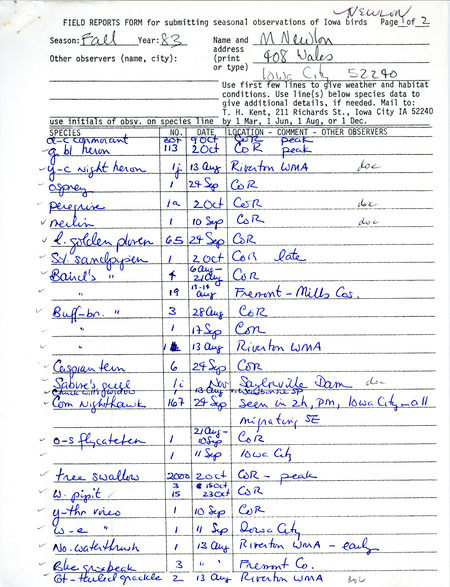 Newton
FIELD REPORTS FORM for submitting seasonal observations of Iowa birds Page 1 of 2
Season: Fall Year: 83 Name and M Newton
Other observers (name, city): address 408 Wales
(print Iowa City 52240
or type)
Use first few lines to give weather and habitat
conditions. Use line(s) below species data to
give additional details, if needed. Mail to:
T. H. Kent, 211 Richards St., Iowa City IA 52240
use initials of obsv. on species line by 1 Mar, 1 Jun, 1 Aug, or 1 Dec.
SPECIES NO. DATE LOCATION - COMMENT - OTHER OBSERVERS
d-c cormorant 9 Oct CoR peak
g bl heron 113 2 Oct CoR peak
y-c night heron 1j 13 Aug Riverton WMA doc
osprey 1 24 Sep CoR
peregrine 1a 2 Oct CoR doc
merlin 1 10 Sep CoR doc
l. golden plover 65 24 Sep CoR
Sol sandpiper 1 2 Oct CoR late
Baird's " 4 6 Aug- 21 Aug CoR
" 19 13-14 Aug Fremont - Mills Cos.
Buff-br. " 3 28 Aug CoR
" 1 17 Sep CoR
" 1 13 Aug Riverton WMA
Caspian tern 6 24 Sep CoR
Sabine's gull 1i Nov Saylorville Dam doc
Chuck-will's-widow 1 13 Aug
Com Nighthawk 167 24 Sep Seen in 2h, PM, Iowa City - all
migrating SE
o-s flycatcher 1 21 Aug- 10 Sep CoR
1 11 Sep Iowa City
tree swallow 2000 2 Oct CoR - peak
W. pipit 3 15 Oct
15 23 Oct CoR
y-thr vireo 1 10 Sep CoR
w-e " 1 11 Sep Iowa City
No. waterthrush 1 13 Aug Riverton WMA - early
Blue grosbeak 3 " " Fremont Co.
Gt-tailed grackle 2 13 Aug Riverton WMA doc